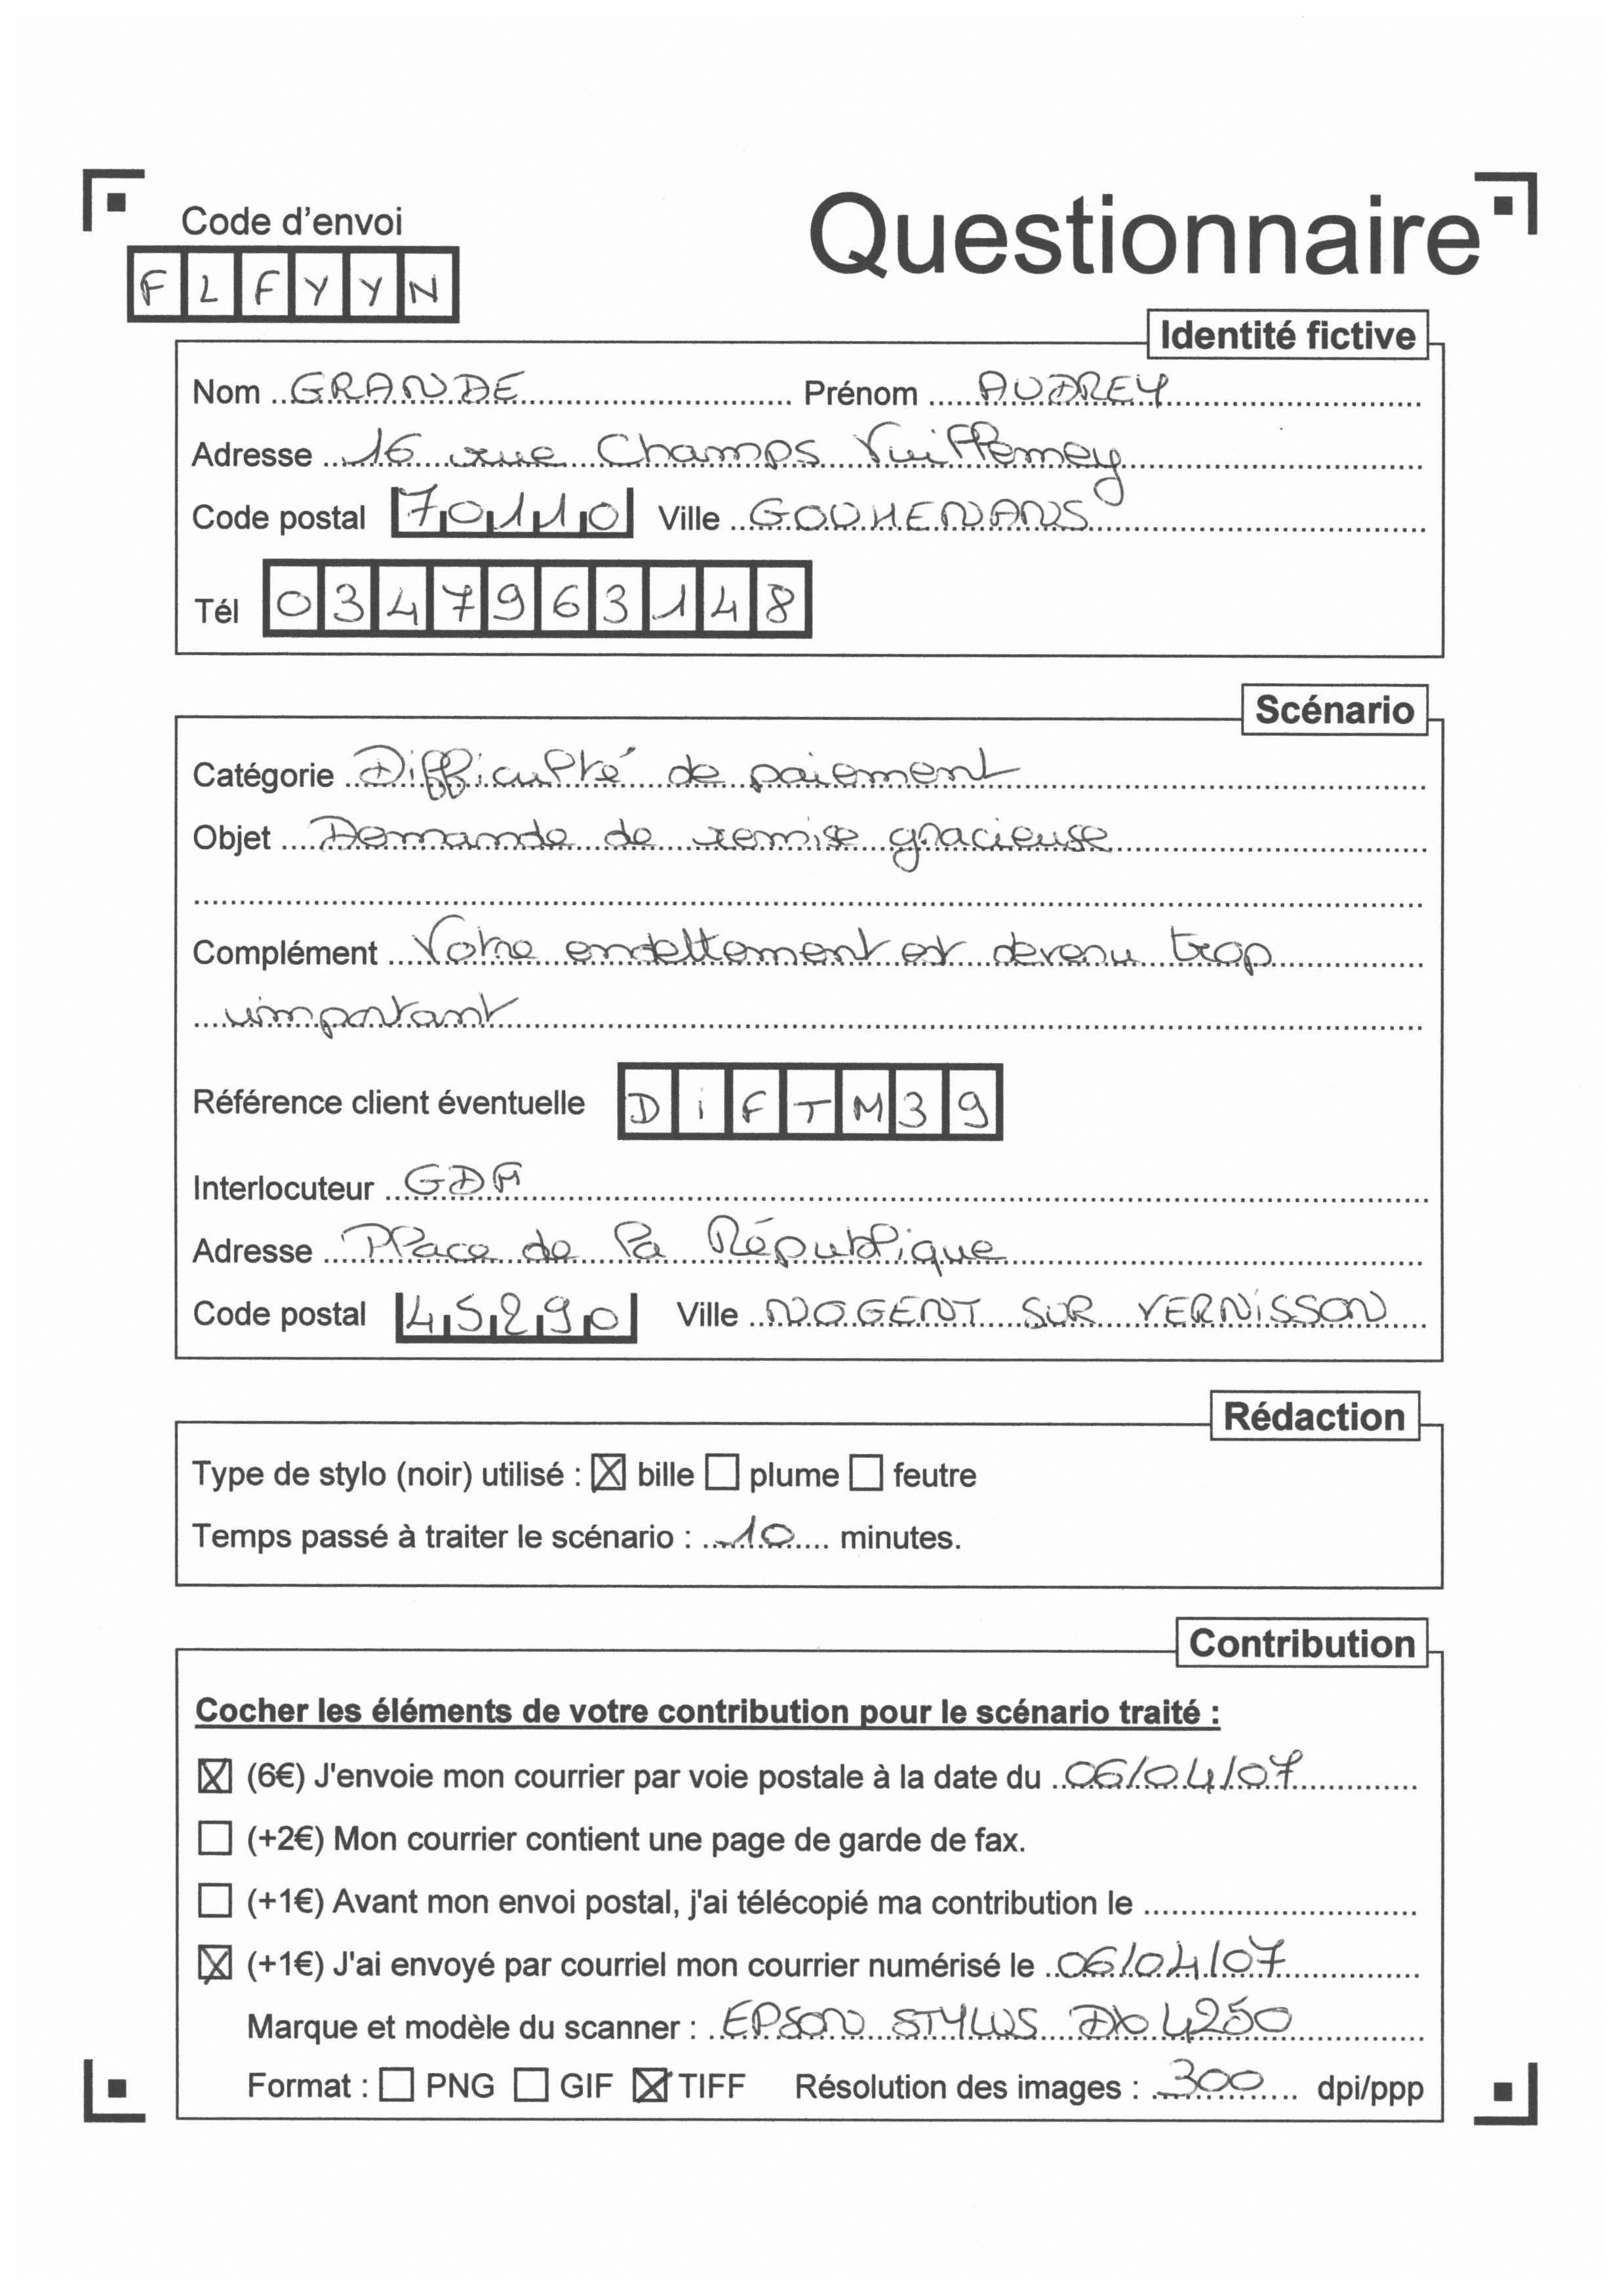 Code d'envoi
Questionnaire
F L F Y Y N
Identité fictive
Nom GRANDE Prénom AUDREY
Adresse 16 rue Champs Vuillemey
Code postal 70110 Ville GOUHENANS
Tél 0347963148
Scénario
Catégorie Difficulté de paiement
Objet Demande de remise gracieuse
Complément Votre endettement est devenu trop
important
Référence client éventuelle DiFTM39
Interlocuteur GDM
Adresse Place de la République
Code postal 45290 Ville NOGENT SUR VERNISSON
Rédaction
Type de stylo (noir) utilisé : ☒ bille ☐ plume ☐ feutre
Temps passé à traiter le scénario : 10 minutes.
Contribution
Cocher les éléments de votre contribution pour le scénario traité :
☒ (6€) J'envoie mon courrier par voie postale à la date du 06/04/07
☐ (+2€) Mon courrier contient une page de garde de fax.
☐ (+1€) Avant mon envoi postal, j'ai télécopié ma contribution le
☒ (+1€) J'ai envoyé par courriel mon courrier numérisé le 06/04/07
Marque et modèle du scanner : EPSON STYLUS DX 4250
Format : ☐ PNG ☐ GIF ☒ TIFF Résolution des images : 300 dpi/ppp